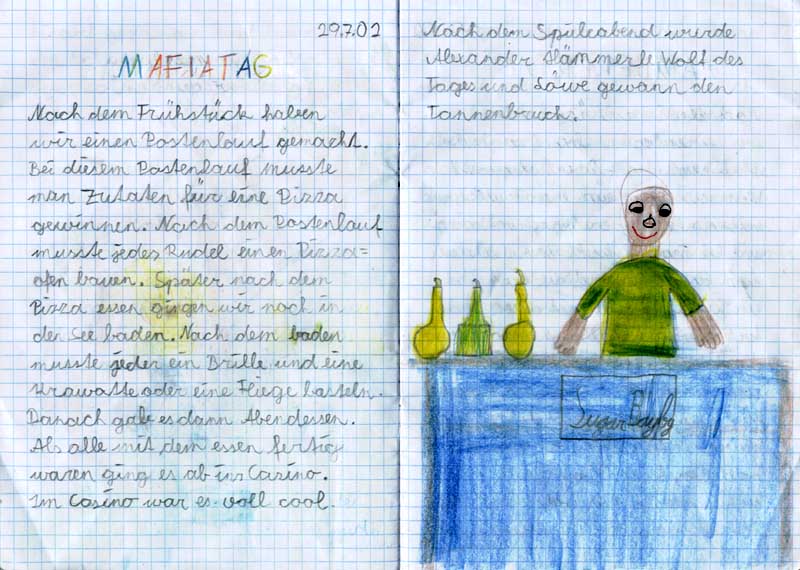 29.7.02
MAFIATAG
Nach dem Frühstück haben
wir einen Postenlauf gemacht.
Bei diesem Postenlauf musste
man Zutaten für eine Pizza
gewinnen. Nach dem Postenlauf
musste jedes Rudel einen Pizza=
ofen bauen. Später nach dem
Pizza essen gingen wir noch in
den See baden. Nach dem baden
musste jeder ein Brille und eine
Krawatte oder eine Fliege basteln.
Danach gab es dann Abendessen.
Als alle mit dem essen fertig
waren ging es ab ins Casino.
Im Casino war es voll cool.
Nach dem Spieleabend wurde
Alexander Hämmerle Wolf des
Tages und Löwe gewann den
Tannenbruch.
Sugar